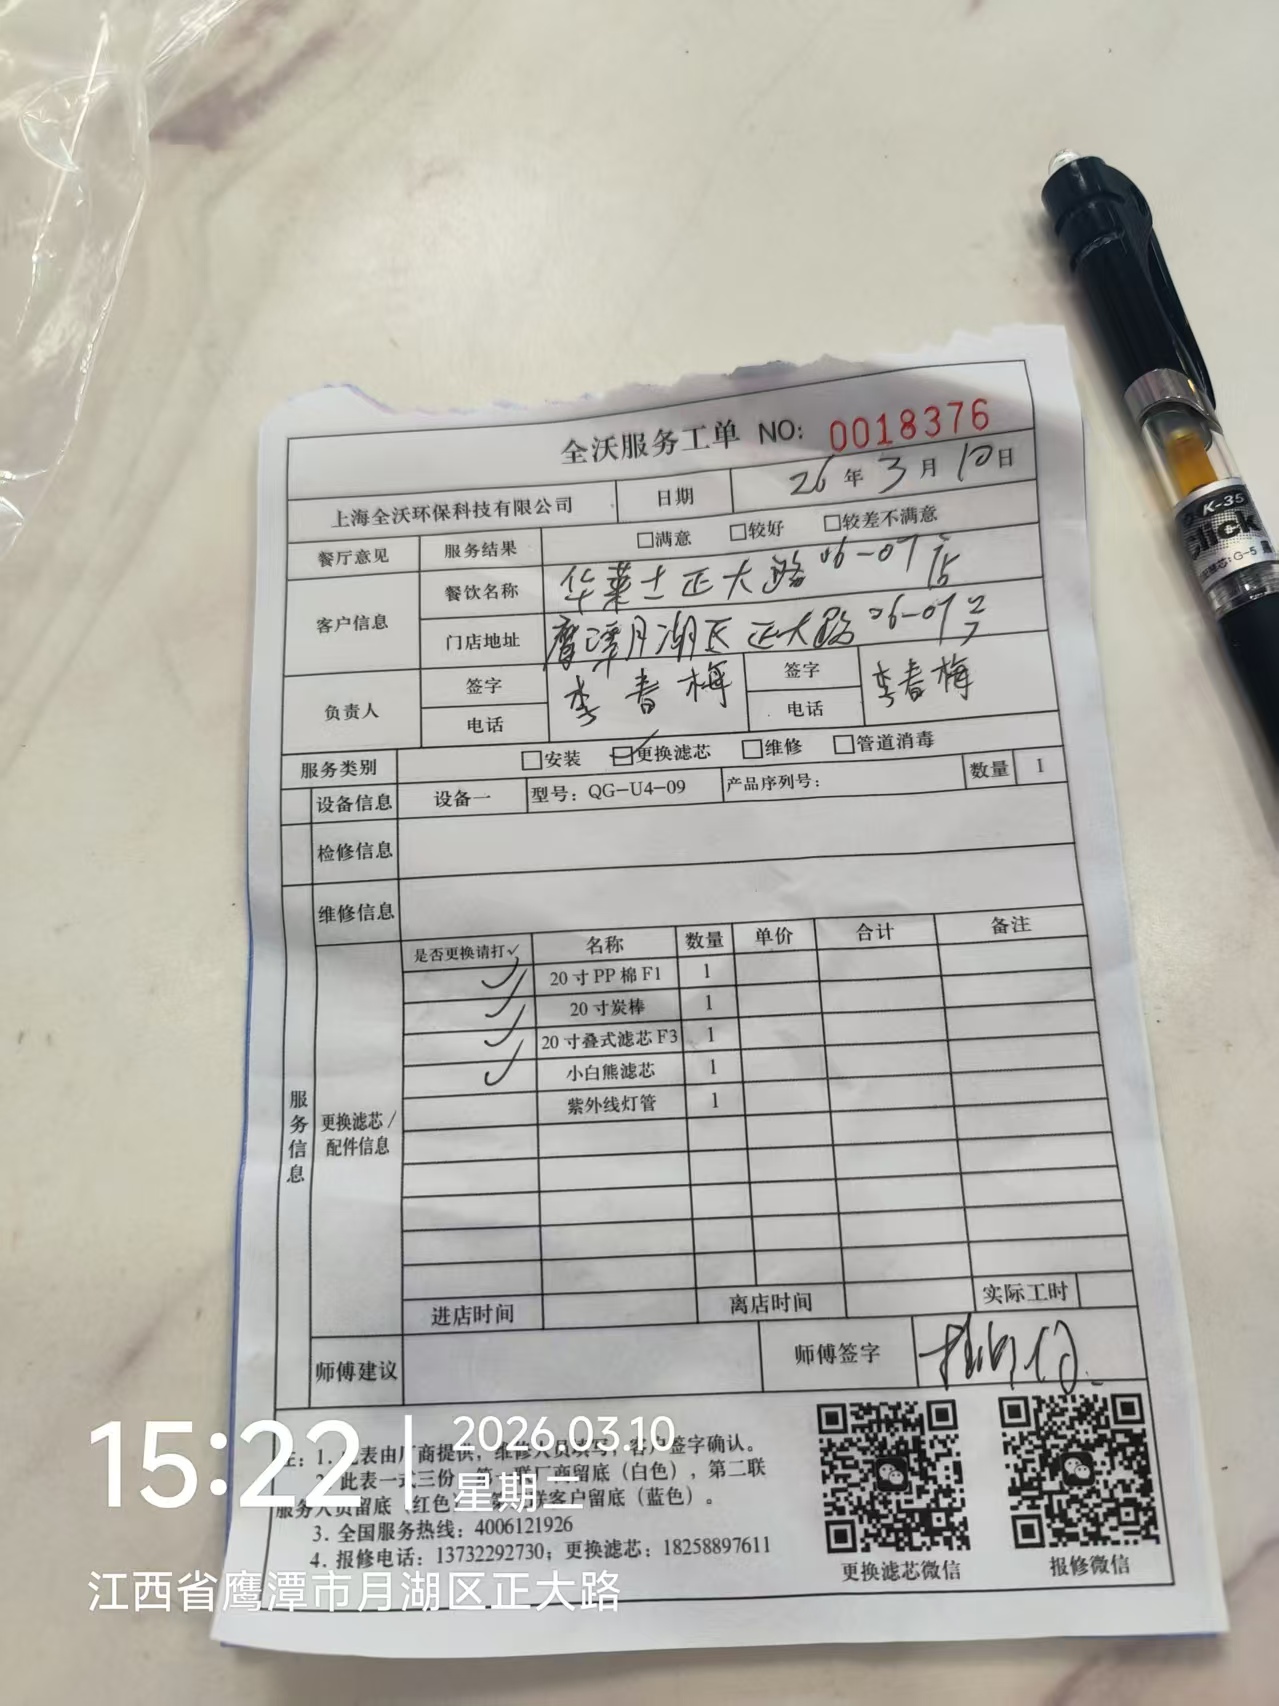 全沃服务工单 NO: 0018376
上海全沃环保科技有限公司 日期 26年3月10日
餐厅意见 服务结果 □满意 □较好 □较差不满意
客户信息 餐饮名称 华莱士正大路06-07店
门店地址 鹰潭月湖区正大路06-07号
负责人 签字 李春梅 签字 李春梅
电话 电话
服务类别 □安装 ☑更换滤芯 □维修 □管道消毒
设备信息 设备一 型号：QG-U4-09 产品序列号： 数量 1
检修信息
维修信息
服务信息
更换滤芯/配件信息
是否更换请打✓ 名称 数量 单价 合计 备注
✓ 20寸PP棉F1 1
✓ 20寸炭棒 1
✓ 20寸叠式滤芯F3 1
✓ 小白熊滤芯 1
紫外线灯管 1
进店时间 离店时间 实际工时
师傅建议 师傅签字
注：1. 此表由厂商提供，维修人员填写，客户签字确认。
2. 此表一式三份，第一联厂商留底（白色），第二联
服务人员留底（红色），第三联客户留底（蓝色）。
3. 全国服务热线：4006121926
4. 报修电话：13732292730；更换滤芯：18258897611
更换滤芯微信 报修微信
15:22 2026.03.10
星期二
江西省鹰潭市月湖区正大路
K-35
click
G-5